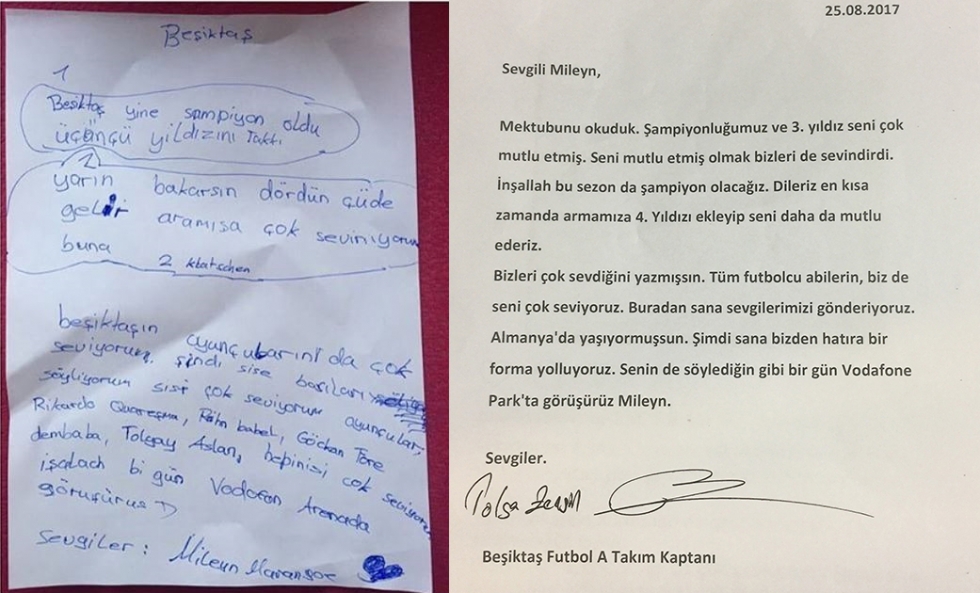 Beşiktaş
1
Beşiktaş yine şampiyon oldu
üçünçü yildizini Taktı
2
yarin bakarsın dördün çüde
gelir aramısa çok seviniyorum
buna
2 klatschen
beşiktaşın oyunçularini da çok
seviyorum. şindi sise basıları
söyliyorum sisi çok seviyorum oyunçular;
Rikardo Quaresma, babel, Göckan Töre
dembaba, Tolgay Aslan, hepinisi çok seviyorum
işalach bi gün Vodofon Arenada
görüşürüs
Sevgiler: Mileyn
25.08.2017
Sevgili Mileyn,
Mektubunu okuduk. Şampiyonluğumuz ve 3. yıldız seni çok
mutlu etmiş. Seni mutlu etmiş olmak bizleri de sevindirdi.
İnşallah bu sezon da şampiyon olacağız. Dileriz en kısa
zamanda armamıza 4. Yıldızı ekleyip seni daha da mutlu
ederiz.
Bizleri çok sevdiğini yazmışsın. Tüm futbolcu abilerin, biz de
seni çok seviyoruz. Buradan sana sevgilerimizi gönderiyoruz.
Almanya'da yaşıyormuşsun. Şimdi sana bizden hatıra bir
forma yolluyoruz. Senin de söylediğin gibi bir gün Vodafone
Park'ta görüşürüz Mileyn.
Sevgiler.
Tolga
Beşiktaş Futbol A Takım Kaptanı